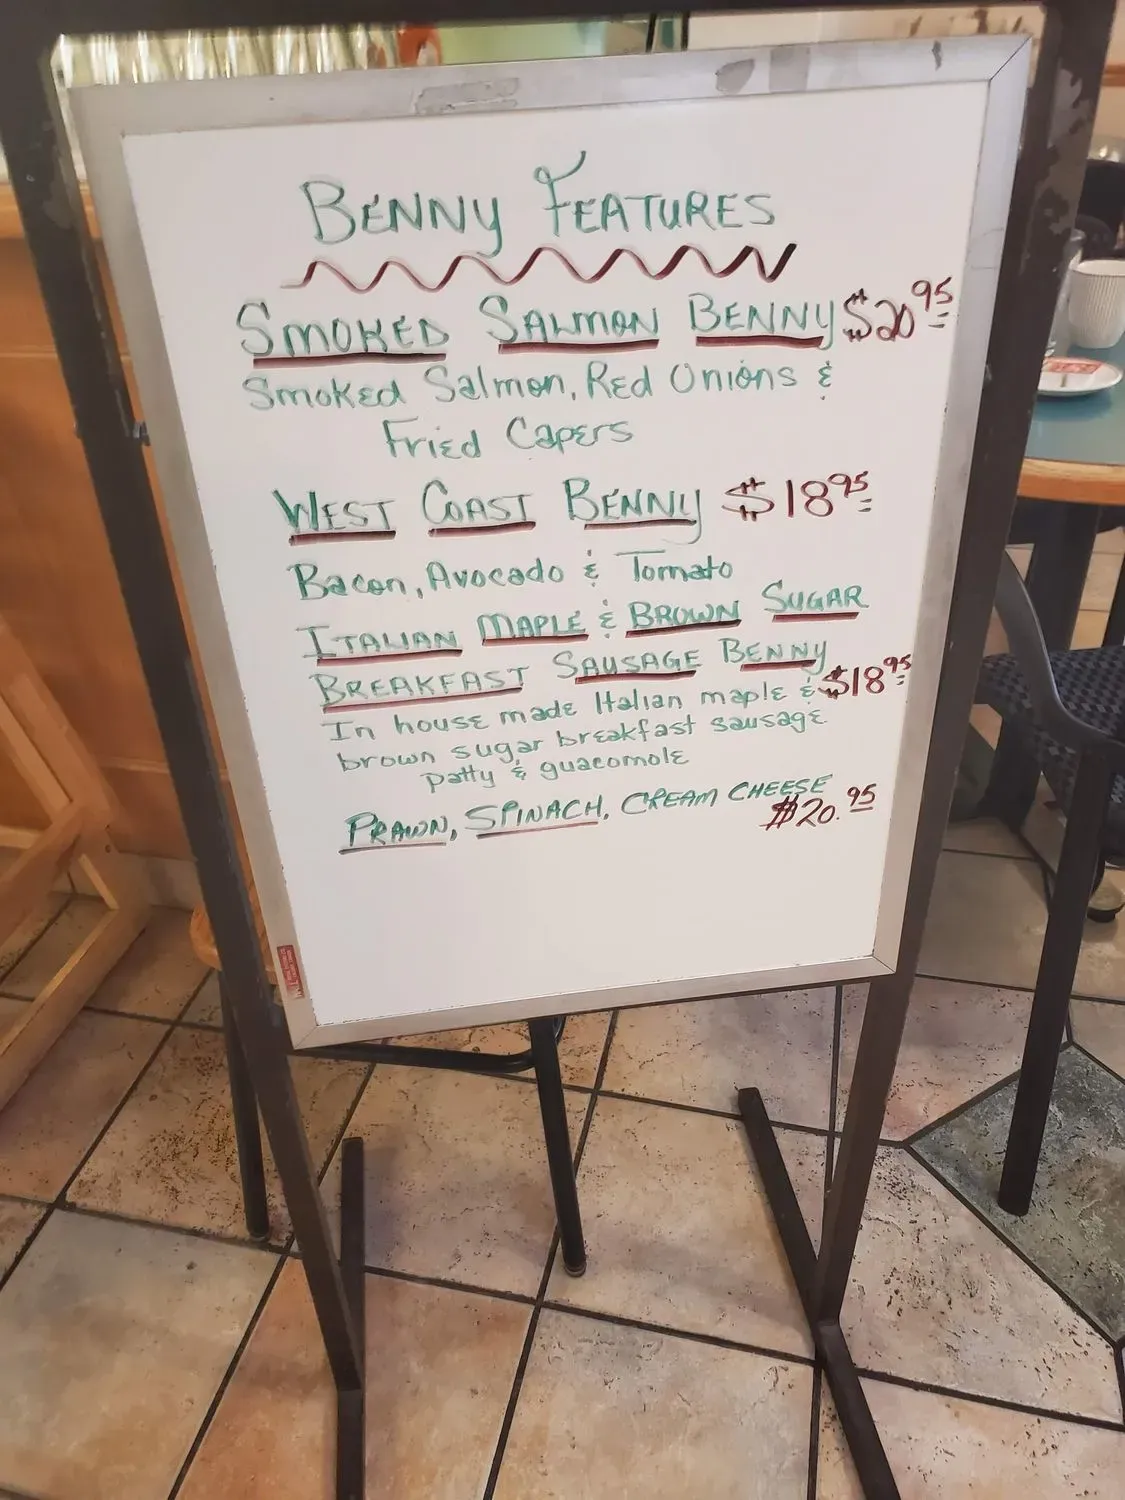 BENNY FEATURES
SMOKED SALMON BENNY $20.95
Smoked Salmon, Red Onions &
Fried Capers
WEST COAST BENNY $18.95
Bacon, Avocado & Tomato
ITALIAN MAPLE & BROWN SUGAR
BREAKFAST SAUSAGE BENNY
In house made Italian maple & $18.95
brown sugar breakfast sausage
patty & guacomole
PRAWN, SPINACH, CREAM CHEESE
$20.95